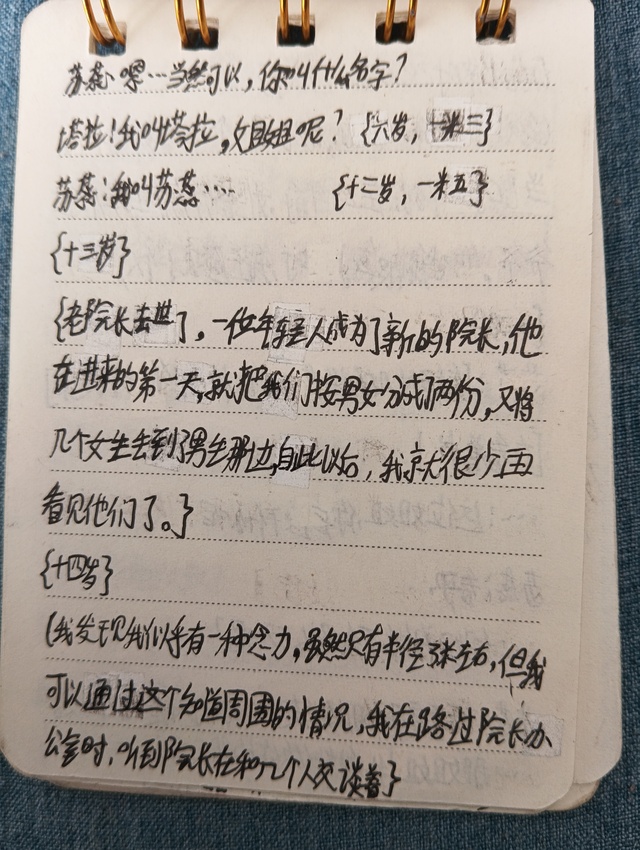 苏蕊:嗯…当然可以,你叫什么名字?
塔拉:我叫塔拉,姐姐呢? {六岁,一米三}
苏蕊:我叫苏蕊…· {十二岁,一米五}
{十三岁}
{老院长去世了,一位年轻人成为了新的院长,他
在进来的第一天,就把我们按男女分成了两份,又将
几个女生丢到了男生那边,自此以后,我就很少再
看见他们了。}
{十四岁}
(我发现我似乎有一种念力,虽然只有半径3米左右,但我
可以通过这个知道周围的情况,我在路过院长办
公室时,听到院长在和几个人交谈着了